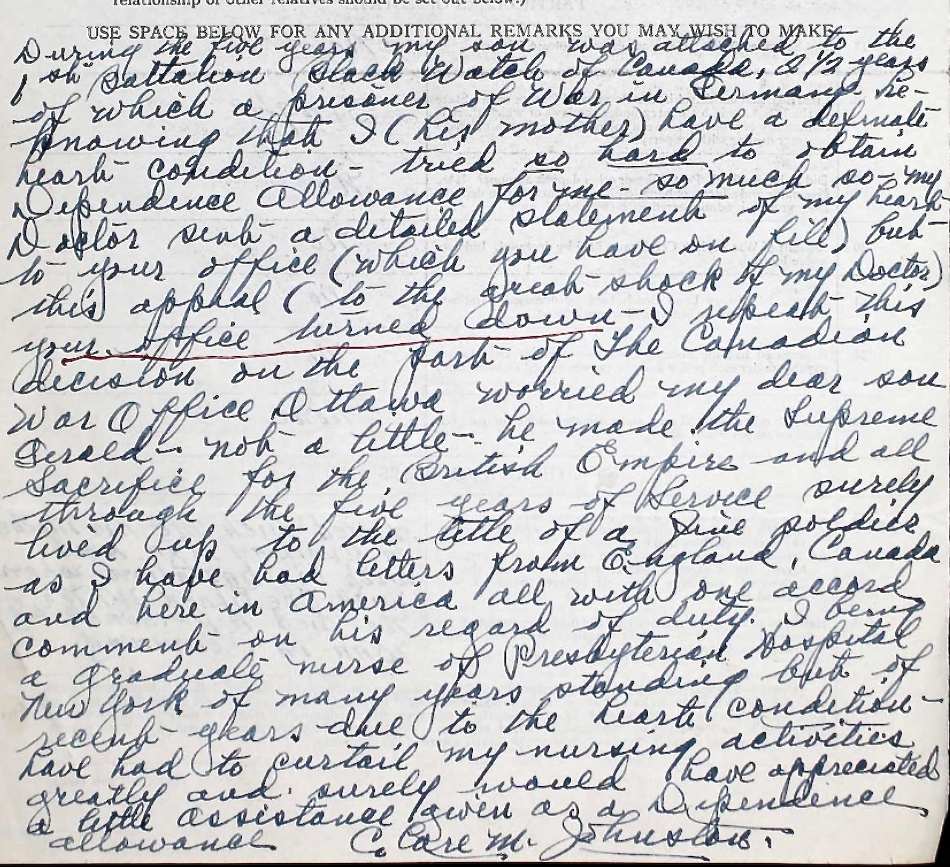 relationship of other relatives should be set out below.)
USE SPACE BELOW FOR ANY ADDITIONAL REMARKS YOU MAY WISH TO MAKE
During the five years my son was attached to the
1st Battalion Black Watch of Canada, 2 1/2 years
of which a prisoner of War in Germany re-
knowing that I (his mother) have a definate
heart condition - tried so hard to obtain
Dependence Allowance for me - so much so - my
Doctor sent a detailed statement of my heart
to your office (which you have on file) but
this appeal (to the great shock of my Doctor)
your office turned down - I repeat this
decision on the part of The Canadian
War Office Ottawa worried my dear son
Gerald - not a little - he made the Supreme
Sacrifice for the British Empire and all
through the five years of Service surely
lived up to the title of a fine soldier
as I have had letters from England, Canada
and here in America all with one accord
comment on his regard of duty. I being
a graduate nurse of Presbyterian Hospital
New York of many years standing but of
recent years due to the heart condition -
have had to curtail my nursing activities
greatly and surely would have appreciated
a little assistance given as a Dependence
allowance C. Care M. Johnston.